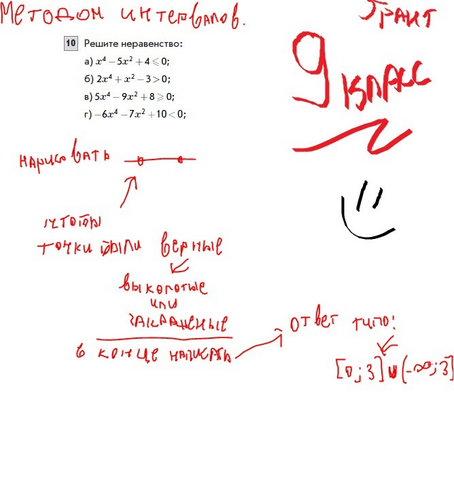 Методом интервалов.
10 Решите неравенство:
а) x⁴ − 5x² + 4 ⩽ 0;
б) 2x⁴ + x² − 3 > 0;
в) 5x⁴ − 9x² + 8 ⩾ 0;
г) −6x⁴ − 7x² + 10 < 0;
9
класс
нарисовать
чтобы
точки были верные
выколотые
или
закрашенные
в конце написать
ответ типо:
[0;3]∪(-∞;3]